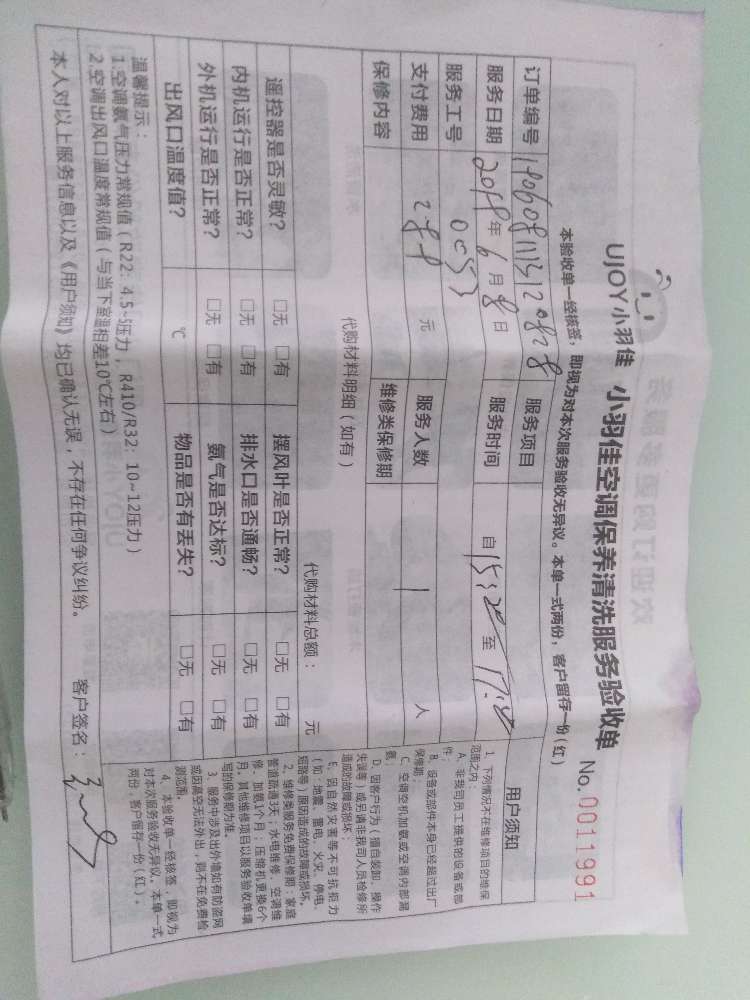 UJOY小羽佳 小羽佳空调保养清洗服务验收单 No.0011991
本验收单一经核签，即视为对本次服务验收无异议。本单一式两份，客户留存一份(红)
订单编号 服务项目
服务日期 2018年6月8日 服务时间 自15:20至
服务工号 0053
支付费用 288 元 服务人数 1 人
保修内容 维修类保修期
代购材料明细(如有) 代购材料总额： 元
遥控器是否灵敏？ □无 □有 摆风叶是否正常？ □无 □有
内机运行是否正常？ □无 □有 排水口是否通畅？ □无 □有
外机运行是否正常？ □无 □有 氨气是否达标？ □无 □有
出风口温度值？ ℃ 物品是否有丢失？ □无 □有
温馨提示：
1.空调氨气压力常规值(R22：4.5~5压力，R410/R32：10~12压力)
2.空调出风口温度常规值(与当下室温相差10℃左右)
本人对以上服务信息以及《用户须知》均已确认无误，不存在任何争议纠纷。 客户签名：
用户须知
1、下列情况不在维修项目的维保
范围之内：
A、非我司员工提供的设备或部
件；
B、设备或部件本身已经超过出厂
保修期；
C、空调空机加氨或空调内部漏
氨；
D、因客户行为(擅自装卸、操作
失误等)或另请非我司人员检修所
造成的故障或损坏；
E、因自然灾害等不可抗拒力
(如：地震、雷电、火灾、停电、
短路等)原因造成的故障或损坏。
2、维修类服务免费保修期：家庭
管道疏通3天；水电维修、空调维
修、加氨1个月；压缩机更换6个
月。其他维修项目以服务验收单填
写的保修期为准。
3、服务中涉及出外墙如有防盗网
或因高空无法外出，则不在免费检
测范围。
4、本验收单一经核签，即视为
对本次服务验收无异议。本单一式
两份，客户留存一份(红)。